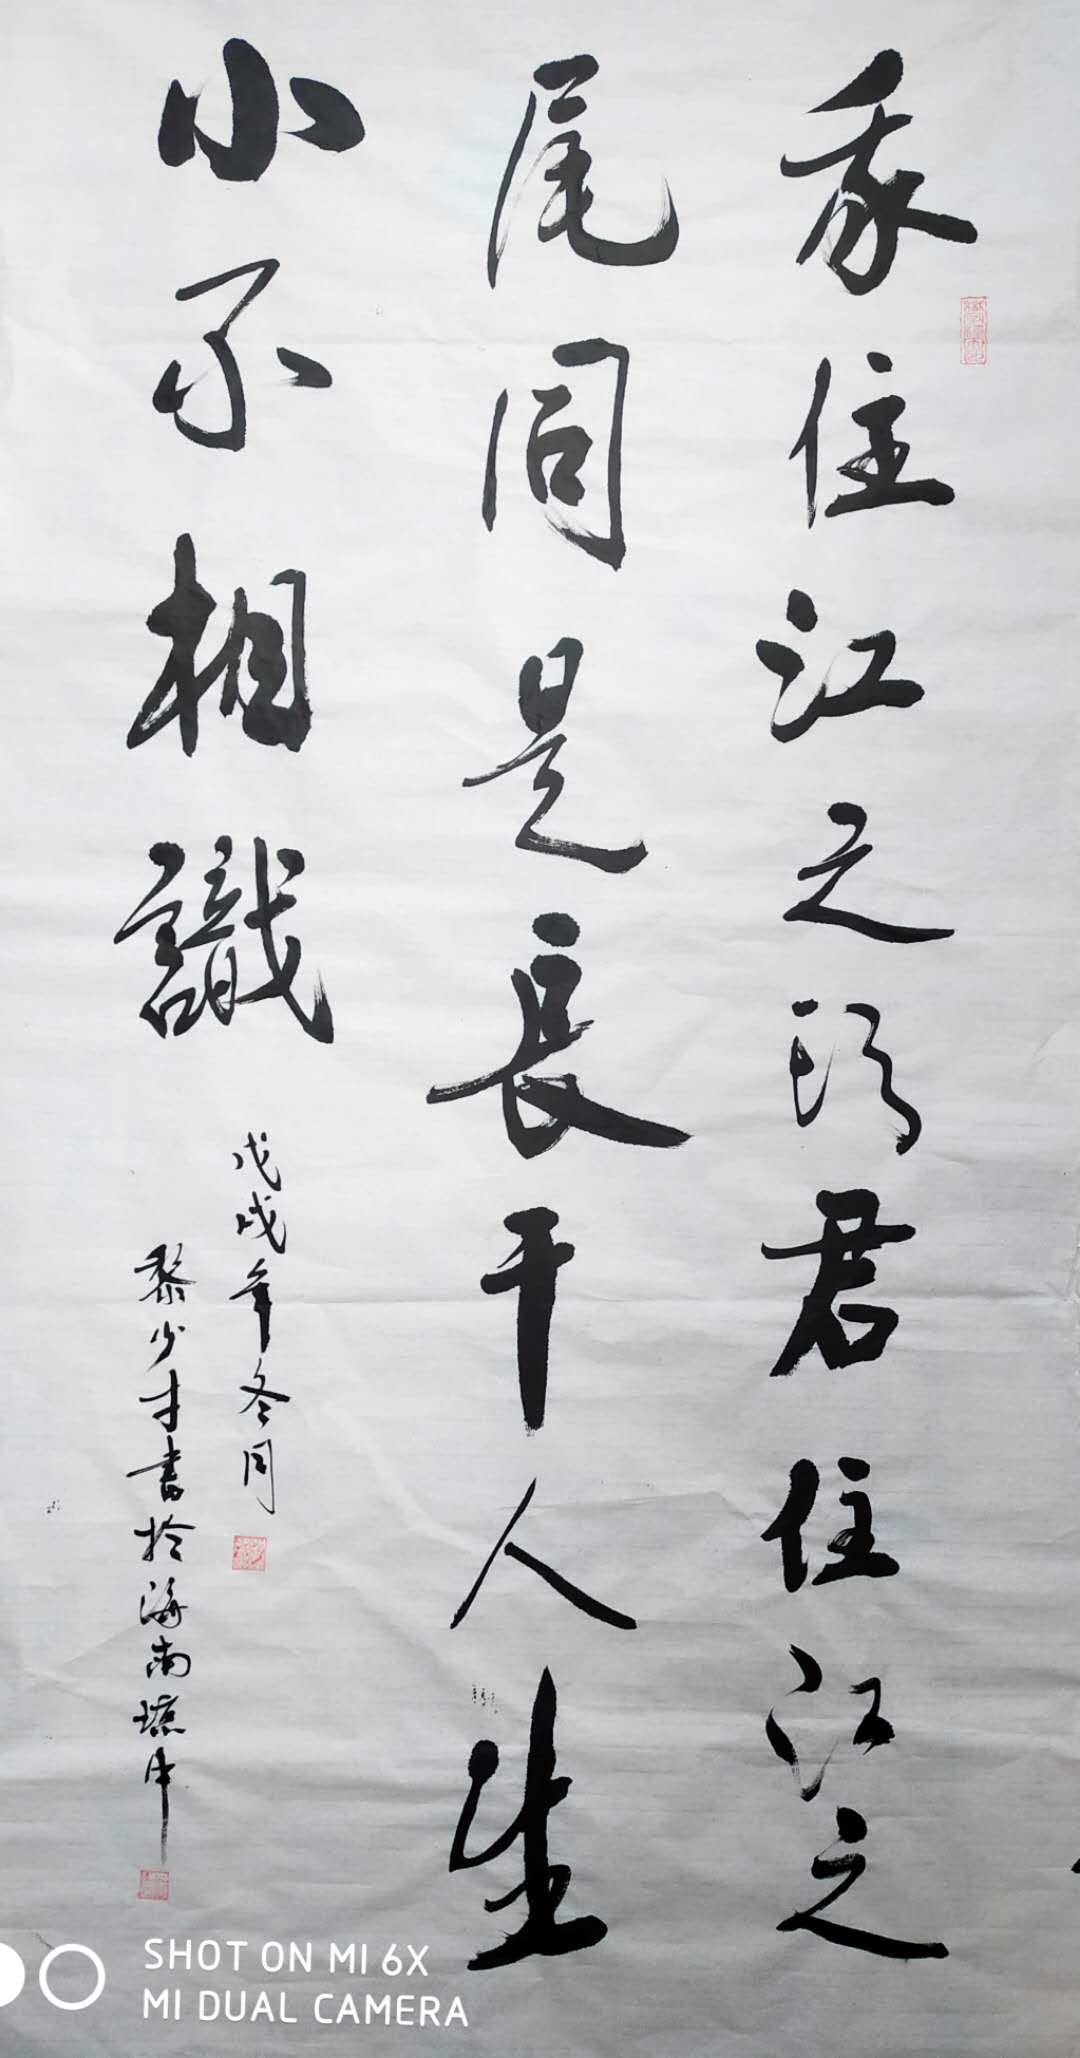 我住江之頭君住江之
尾同是長干人生
小不相識
戊戌年冬月
黎少才書於海南
SHOT ON MI 6X
MI DUAL CAMERA